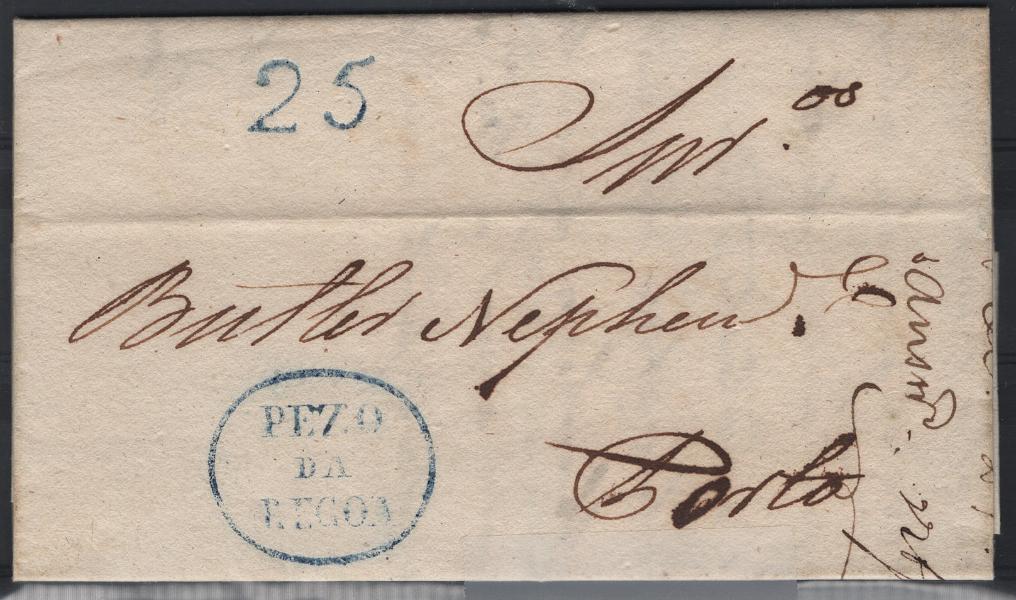 25
Snr.os
Butler Nephew. &
PEZO
DA
REGOA
Porto